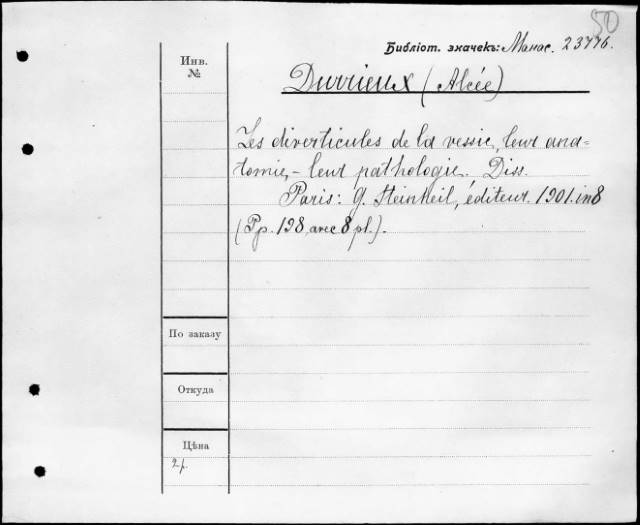 50
Библіот. значекъ: Манас. 23776.
Инв.
№
Durrieux (Alcée)
Les diverticules de la vessie, leur ana=
tomie, - leur pathologie. Diss.
Paris: G. Steinheil, éditeur. 1901. in 8
(Pp. 198, avec 8 pl.).
По заказу
Откуда
Цѣна
2 р.